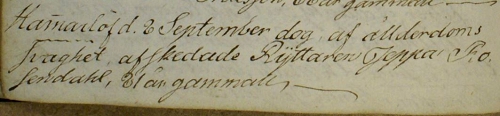 år gammall
Hamarlöf d. 2 September dog af ålderdoms
svaghet afskedade Ryttaren Jeppa Ro-
sendahl, 81 år gammall,